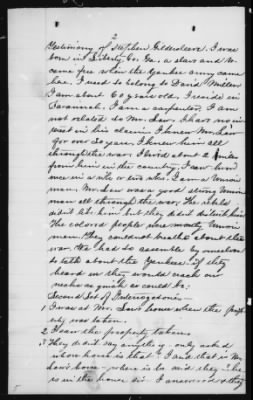 2
Testimony of Stephen Gildersleeve. I was
born in Liberty Co. Ga. a slave and be
came free when the Yankee army came
here. I used to belong to David Miller
I am about 60 years old. I reside in
Savannah. I am a carpenter. I am
not related to Mr. Law. I have no in
terest in his claim. I knew Mr. Law
for over 20 years. I knew him all
through the war. I lived about 2 miles
from him in this country. I saw him
once in a while or two who. I am a Union
man. Mr. Law was a good strong Union
man all through the war. The rebels
didn't like him but they didn't disturb him
The colored people were mostly Union
men. They couldn't breathe about the
war. We had to assemble by ourselves
to talk about the Yankees if they
heard us they would reach our
make as quick as could be:
Second Set of Interrogatories —
1 I was at Mr. Law's house when the prop
erty was taken.
2 I saw the property taken.
3 They didn't say anything - only asked
whose house is that? I said that is Mr
Law's home - where is he said they? he
is in the house sir I answered & they